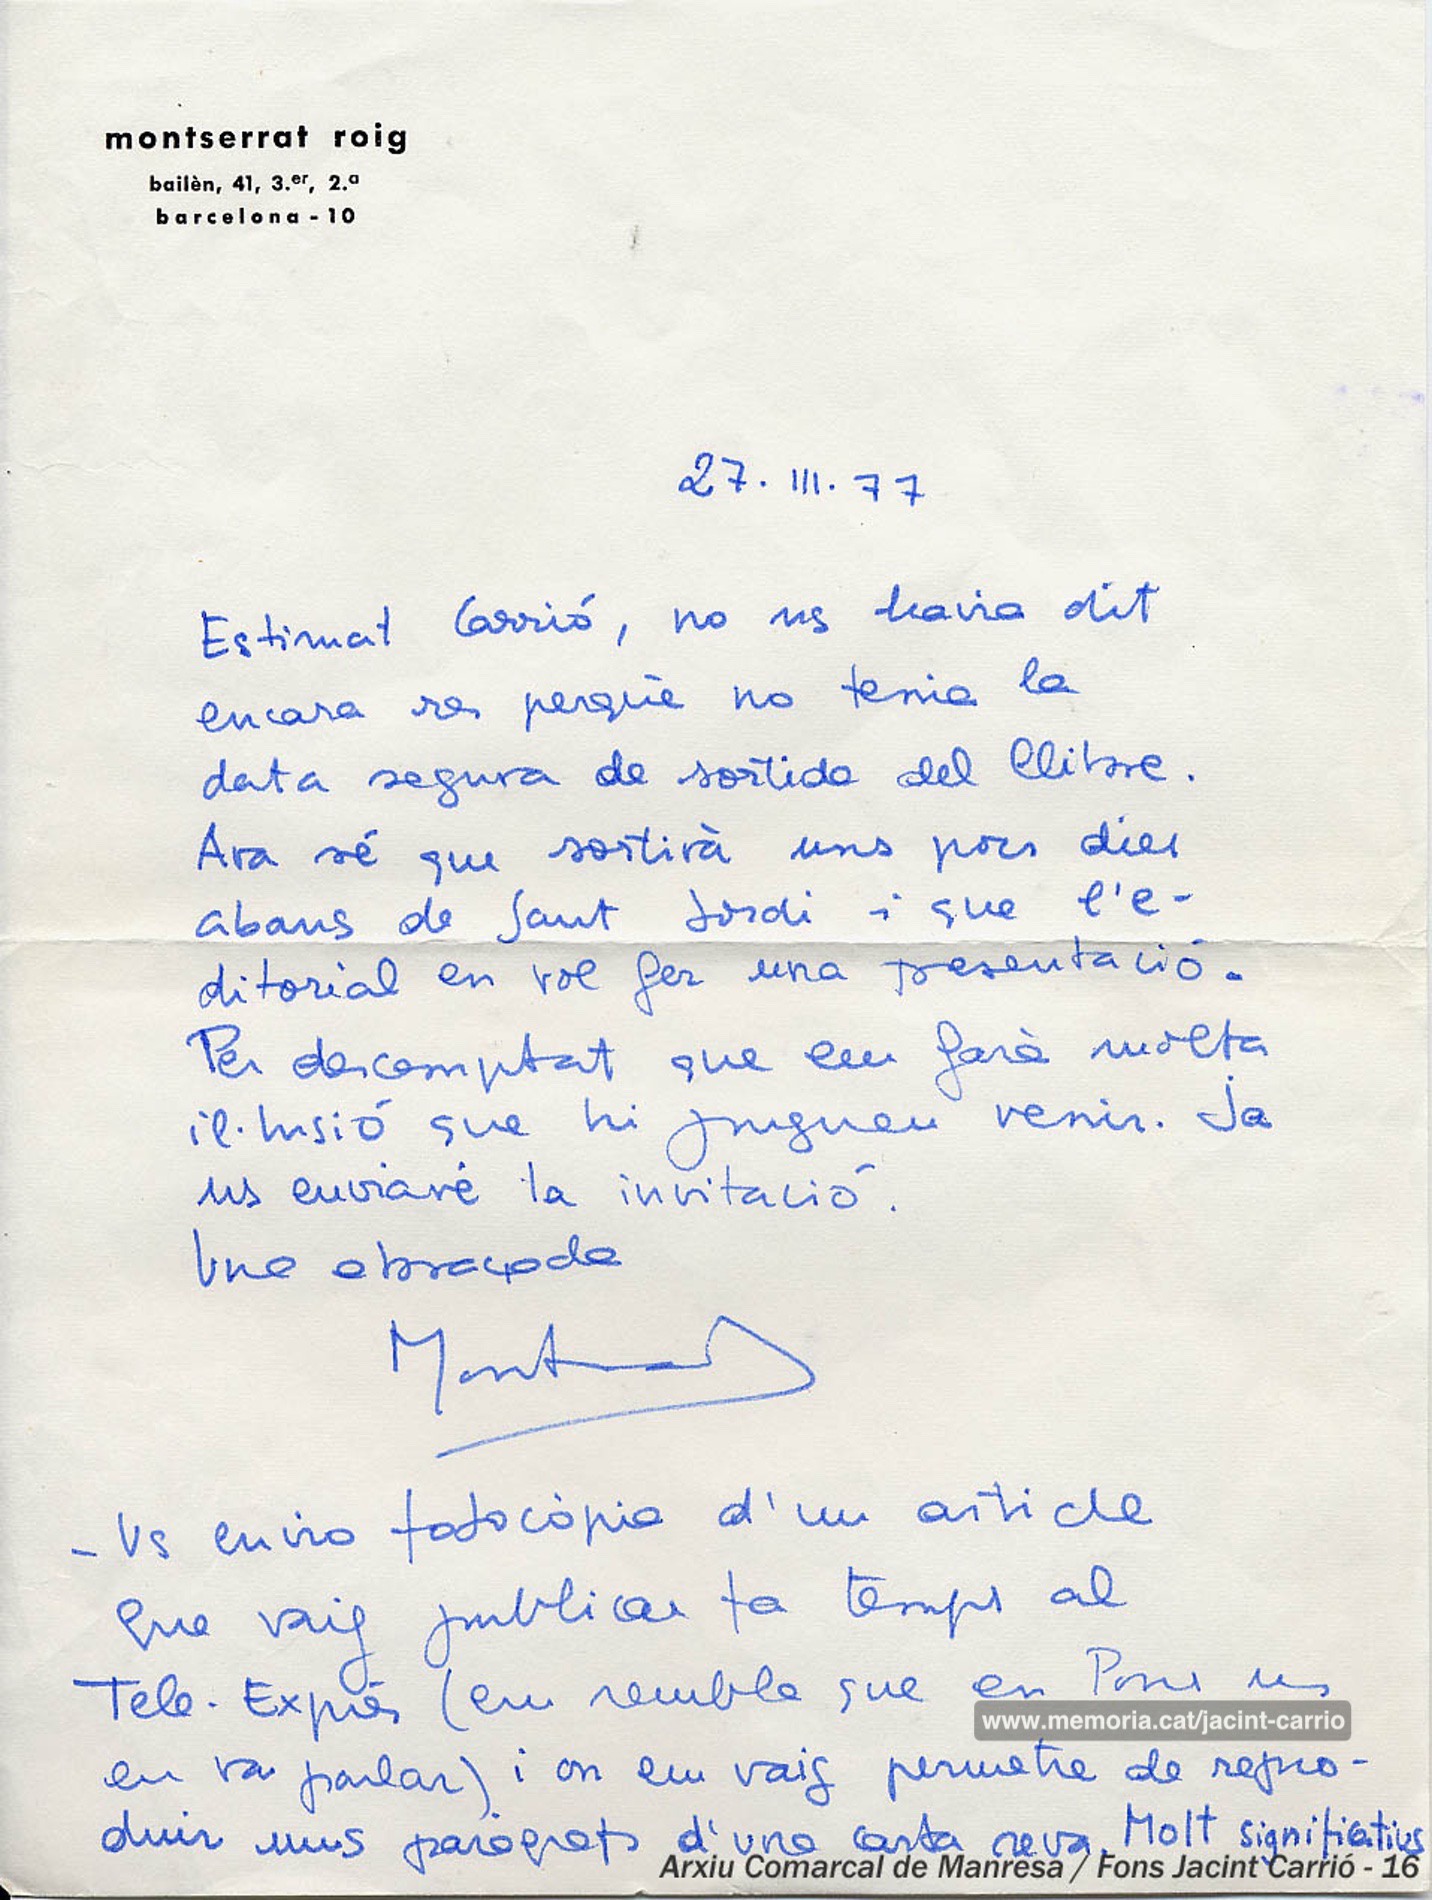 montserrat roig
bailèn, 41, 3.er, 2.a
barcelona - 10
27. III. 77
Estimat Carrió, no us havia dit
encara res perquè no tenia la
data segura de sortida del llibre.
Ara sé que sortirà uns pocs dies
abans de Sant Jordi i que l'e-
ditorial en vol fer una presentació.
Per descomptat que em farà molta
il·lusió que hi pugueu venir. Ja
us enviaré la invitació.
Una abraçada
Montserrat
- Us envio fotocòpia d'un article
que vaig publicar fa temps al
Tele-Exprés (em sembla que en Pons us
www.memoria.cat/jacint-carrio
en va parlar) i on em vaig permetre de repro-
duir uns paràgrafs d'una carta seva. Molt significatius
Arxiu Comarcal de Manresa / Fons Jacint Carrió - 16